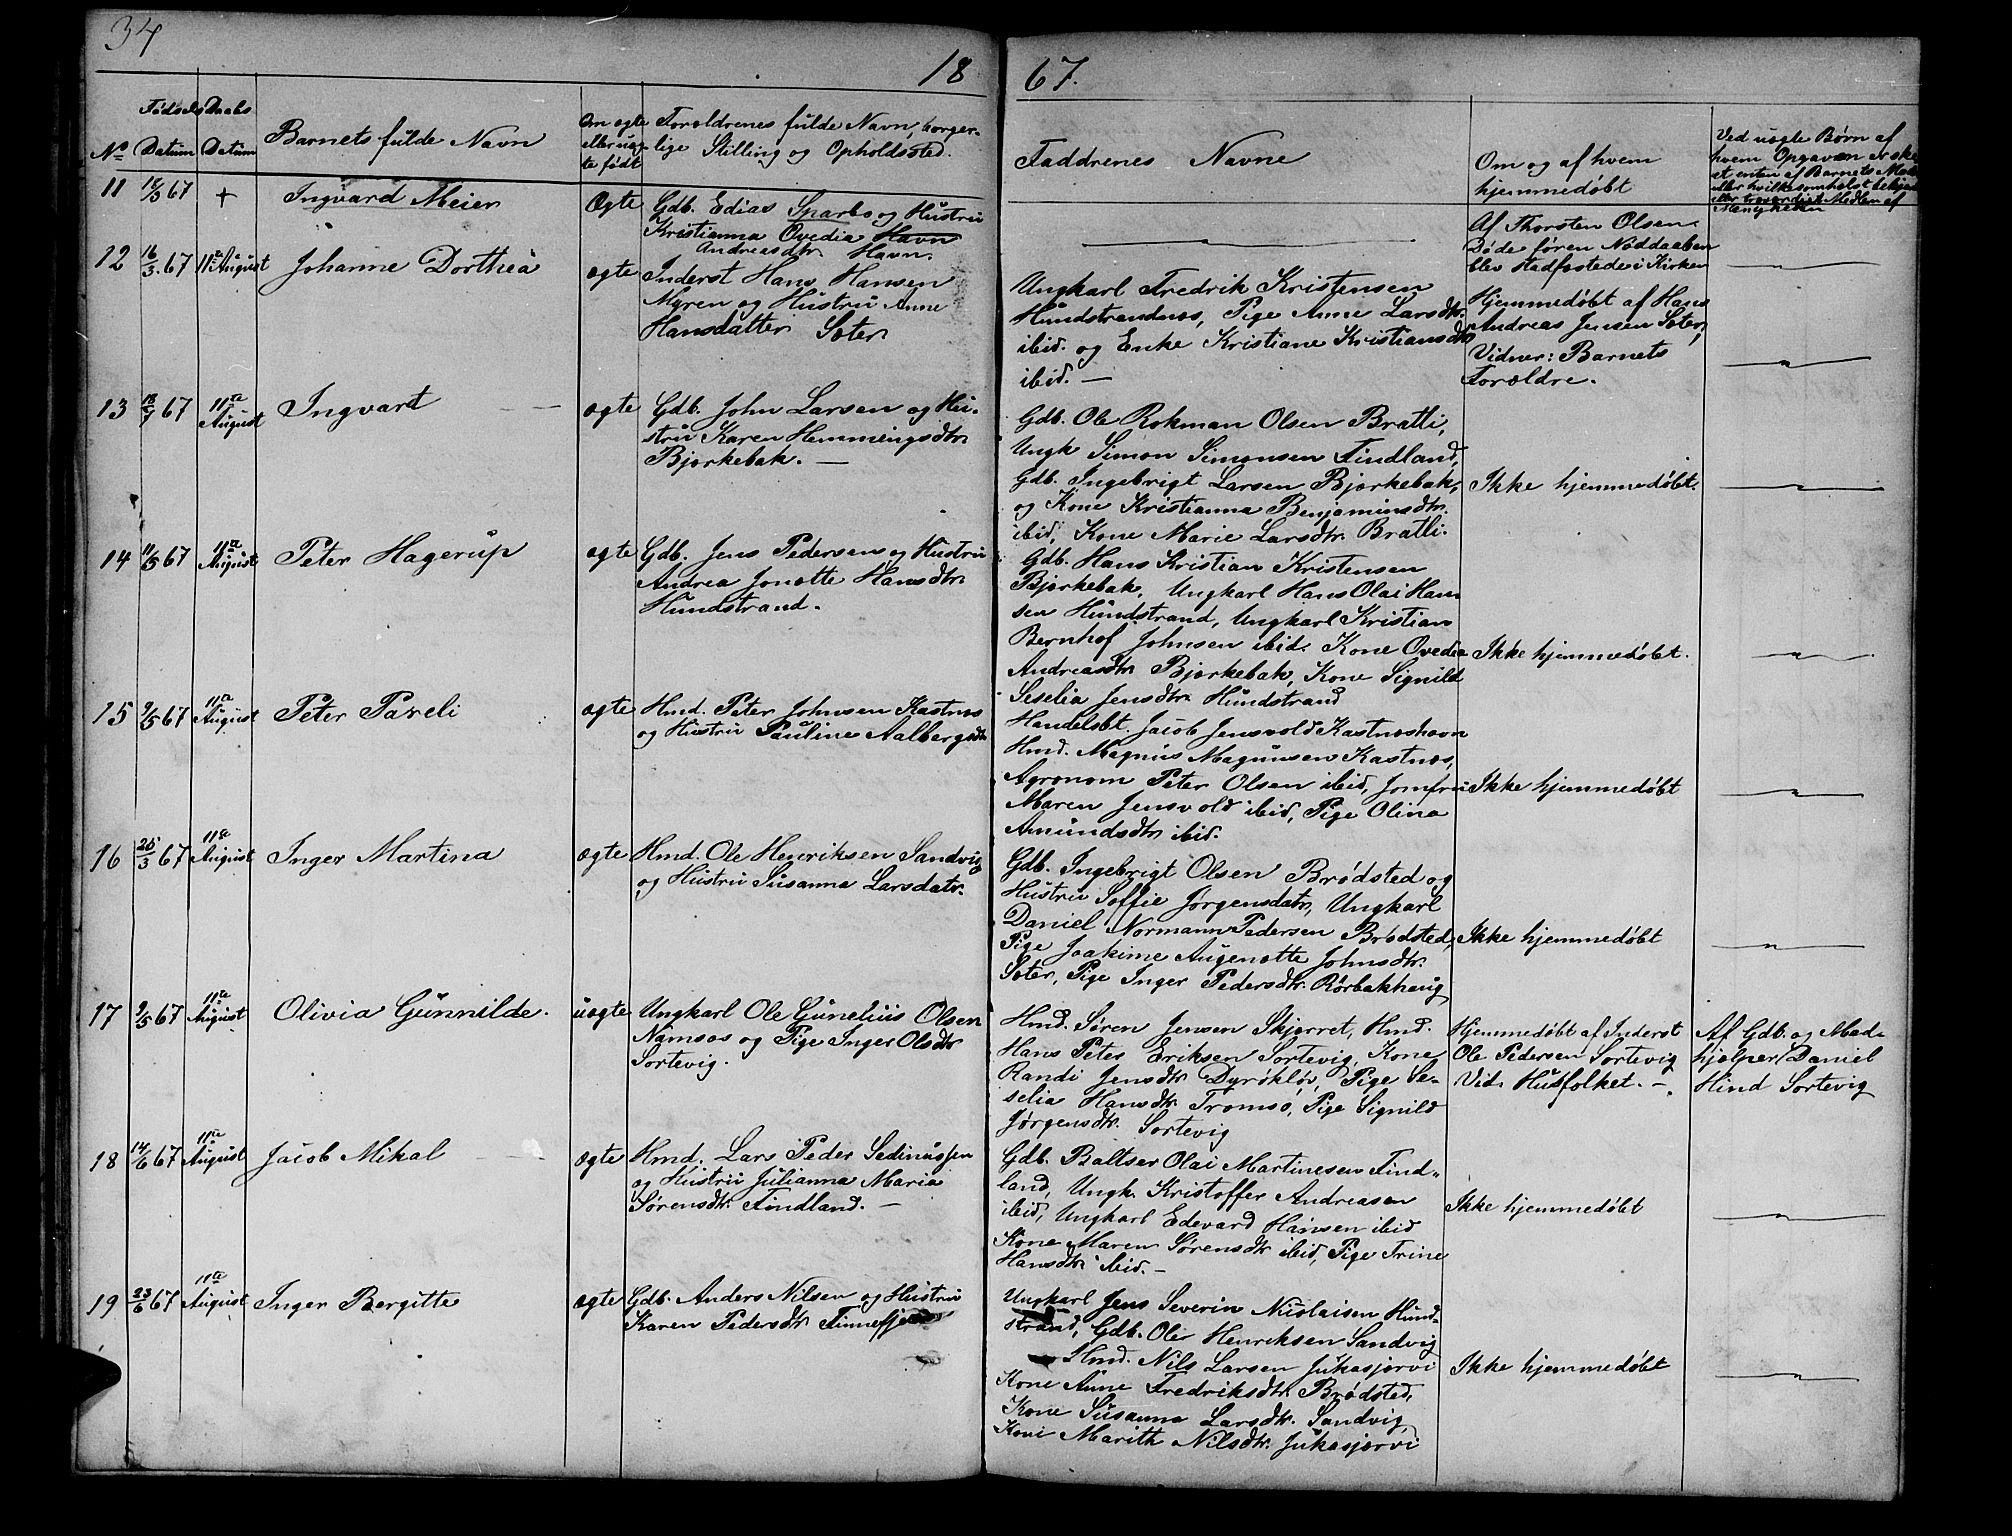 34
18 67.
Fødsels Daabs
No Datum Datum
Barnets fulde Navn
Om ægte
eller uæg-
te født
Forældrenes fulde Navn, borger-
lige Stilling og Opholdssted.
Faddrenes Navne
Om og af hvem
hjemmedøbt
Ved uægte Børn af
hvem Opgaven er ske
et enten af Barnets Mod
eller hvilkesomhelst bekjen
eller troværdigt Medlem af
Menigheden
11 18/3 67 + Ingvard Meier Ægte
Gdb. Edias Sparbo og Hustru
Kristianna Ovedia Havn
Andreasdtr Havn.
Af Thorsten Olsen.
Døde føren Nøddaaben
blev stadfæstede i Kirken
12 16/3 67 11te August Johanne Dorthea ægte
Inderst Hans Hansen
Myren og Hustru Anne
Hansdatter Sæter
Ungkarl Fredrik Kristensen
Hundstrandnæs, Pige Anne Larsdtr.
ibid. og Enke Kristiane Kristiansdtr
ibid. —
Hjemmedøbt af Hans
Andreas Jensen Sæter,
Vidner: Barnets
Forældre.
13 18/4 67 11te August Ingvart ægte
Gdb. John Larsen og Hu-
stru Karen Hemmingsdtr
Bjørkebak. —
Gdb. Ole Rokman Olsen Bratli,
Ungk Simon Simonsen Findland,
Gdb. Ingebrigt Larsen Bjørkebak,
og Kone Kristianna Benjaminsdtr.
ibid, Kone Marie Larsdtr. Bratli.
Ikke hjemmedøbt.
14 11/5 67 11te August Peter Hagerup ægte
Gdb. Jens Pedersen og Hustru
Andrea Jonette Hansdtr
Hundstrand.
Gdb. Hans Kristian Kristensen
Bjørkebak, Ungkarl Hans Olai Han
sen Hundstrand, Ungkarl Kristian
Bernhof Johnsen ibid. Kone Ovedia
Andreasdtr Bjørkebak, Kone Signild
Seselia Jensdtr Hundstrand
Ikke hjemmedøbt.
15 9/5 67 11te August Peter Pareli ægte
Hmd. Peter Johnsen Kastnæs
og Hustru Pauline Aalbergsdtr
Handelsbt. Jacob Jensvold Kastnæshavn
Hmd. Magnus Magnusen Kastnæs,
Agronom Peter Olsen ibid, Jomfru
Maren Jensvold ibid, Pige Olina
Amundsdtr ibid.
Ikke hjemmedøbt
16 25/3 67 11te August Inger Martina ægte
Hmd. Ole Henriksen Sandvig
og Hustru Susanna Larsdatr.
Gdb. Ingebrigt Olsen Brødsted og
Hustru Soffie Jørgensdatr, Ungkarl
Daniel Normann Pedersen Brødsted,
Pige Joakime Augenette Johnsdtr.
Sæter, Pige Inger Pedersdtr. Rørbakhaug
Ikke hjemmedøbt
17 9/5 67 11te August Olivia Gunnilde. uægte
Ungkarl Ole Gunelius Olsen
Namsos og Pige Inger Olsdtr
Sortevig.
Hmd. Søren Jensen Skjærret, Hmd.
Hans Peter Eriksen Sortevig, Kone
Randi Jensdtr Dyrøkløv, Pige Se-
selia Hansdtr. Tromsø, Pige Signild
Jørgensdtr. Sortevig
Hjemmedøbt af Inderst
Ole Pedersen Sortevig
Vid. Husfolket. —
Af Gdb. og Med-
hjelper Daniel
Hind Sortevig
18 14/6 67 11te August Jacob Mikal ægte
Hmd. Lars Peder Sedinussen
og Hustru Julianna Maria
Sørensdtr. Findland. —
Gdb. Baltser Olai Martinesen Find-
land, Ungk. Kristoffer Andreasen
ibid, Ungkarl Edevard Hansen ibid
Kone Maren Sørensdtr ibid, Pige Trine
Hansdtr ibid. —
Ikke hjemmedøbt
19 23/6 67 11te August Inger Bergitte ægte
Gdb. Anders Nilsen og Hustru
Karen Pedersdtr Finnefj
Ungkarl Jens Severin Nicolaisen Hund-
strand, Gdb. Ole Henriksen Sandvig
Hmd. Nils Larsen Jukasjærvi
Kone Anne Fredriksdtr. Brødsted,
Kone Susanna Larsdtr. Sandvig,
Kone Marith Nilsdtr. Jukasjærvi
Ikke hjemmedøbt